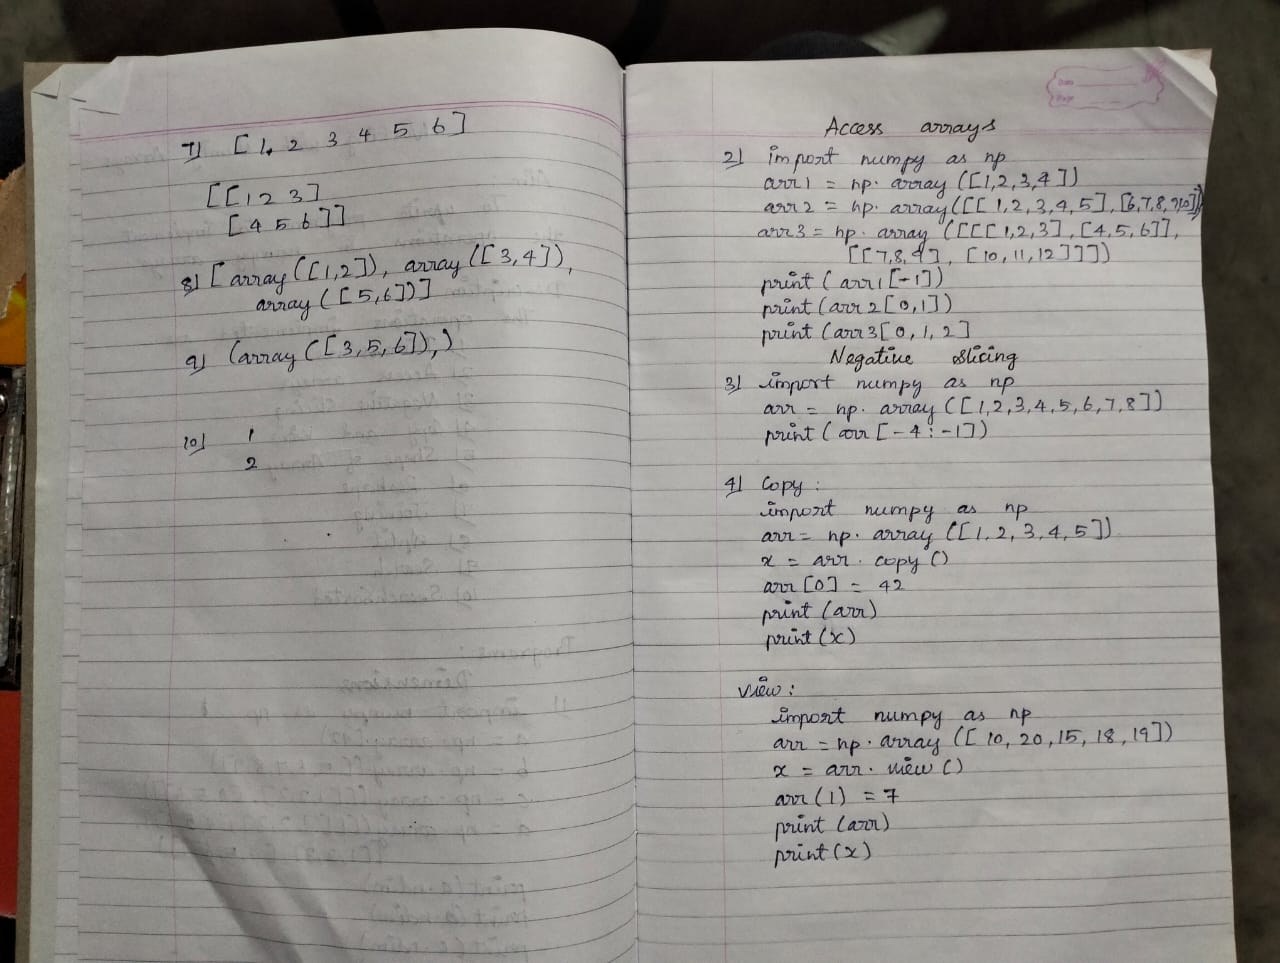 7) [1, 2 3 4 5 6]
[[1 2 3]
[4 5 6]]
8) [array([1,2]), array([3,4]),
array([5,6])]
9) (array([3,5,6]),)
10) 1
2
Date
Page
Access arrays
2) import numpy as np
arr1 = np. array ([1,2,3,4])
arr2 = np. array([[1,2,3,4,5],[6,7,8,9,10]])
arr3 = np. array ([[[1,2,3],[4,5,6]],
[[7,8,9], [10,11,12]]])
print (arr1[-1])
print (arr2[0,1])
print (arr3[0,1,2]
Negative slicing
3) import numpy as np
arr = np. array ([1,2,3,4,5,6,7,8])
print (arr[-4:-1])
4) Copy :
import numpy as np
arr = np. array ([1,2,3,4,5])
x = arr. copy ()
arr [0] = 42
print (arr)
print (x)
View :
import numpy as np
arr = np. array ([10, 20, 15, 18, 19])
x = arr. view ()
arr (1) = 7
print (arr)
print (x)